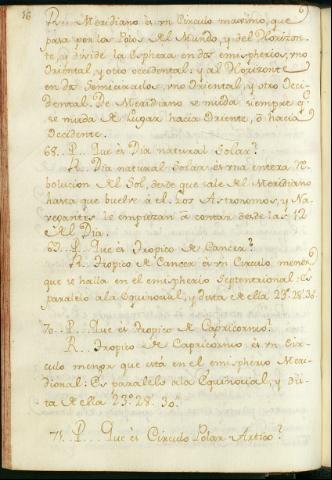 16
R... Meridiano ès vn Circulo maximo, que
pasa por los Polos del Mundo, y del Horizon-
te, y divide la Esphera en dos emispherios, vno
Oriental, y otro occidental: y al Horizonte
en dos Semicirculos, vno Oriental, y otro Occi-
dental. De Meridiano se muda siempre q.e
se muda de Lugar hacia Oriente, ò hacia
Occidente.
68.. P.. Que ès Dia natural Solar?
R.. Dia natural Solar ès vna entera Re
bolucion del Sol, desde que sale del Meridiano
hasta que buelve à el: Los Astronomos, y Na-
vegantes le empiezan à contar desde las 12
del Dia.
69.. P.. Que ès Tropico de Cancer?
R.. Tropico de Cancer ès vn Circulo menor
que se halla en el emispherio Septentrional: Es
paralelo a la Equinocial, y dista de ella 23.º 28.' 30."
70.. P.. Que ès Tropico de Capricornio?
R.. Tropico de Capricornio ès vn Cir-
culo menor que està en el emispherio Meri-
dional: Es paralelo a la Equinocial, y dis-
ta de ella 23.º 28.' 30."
71.. P... Que ès Circulo Polar Artico?